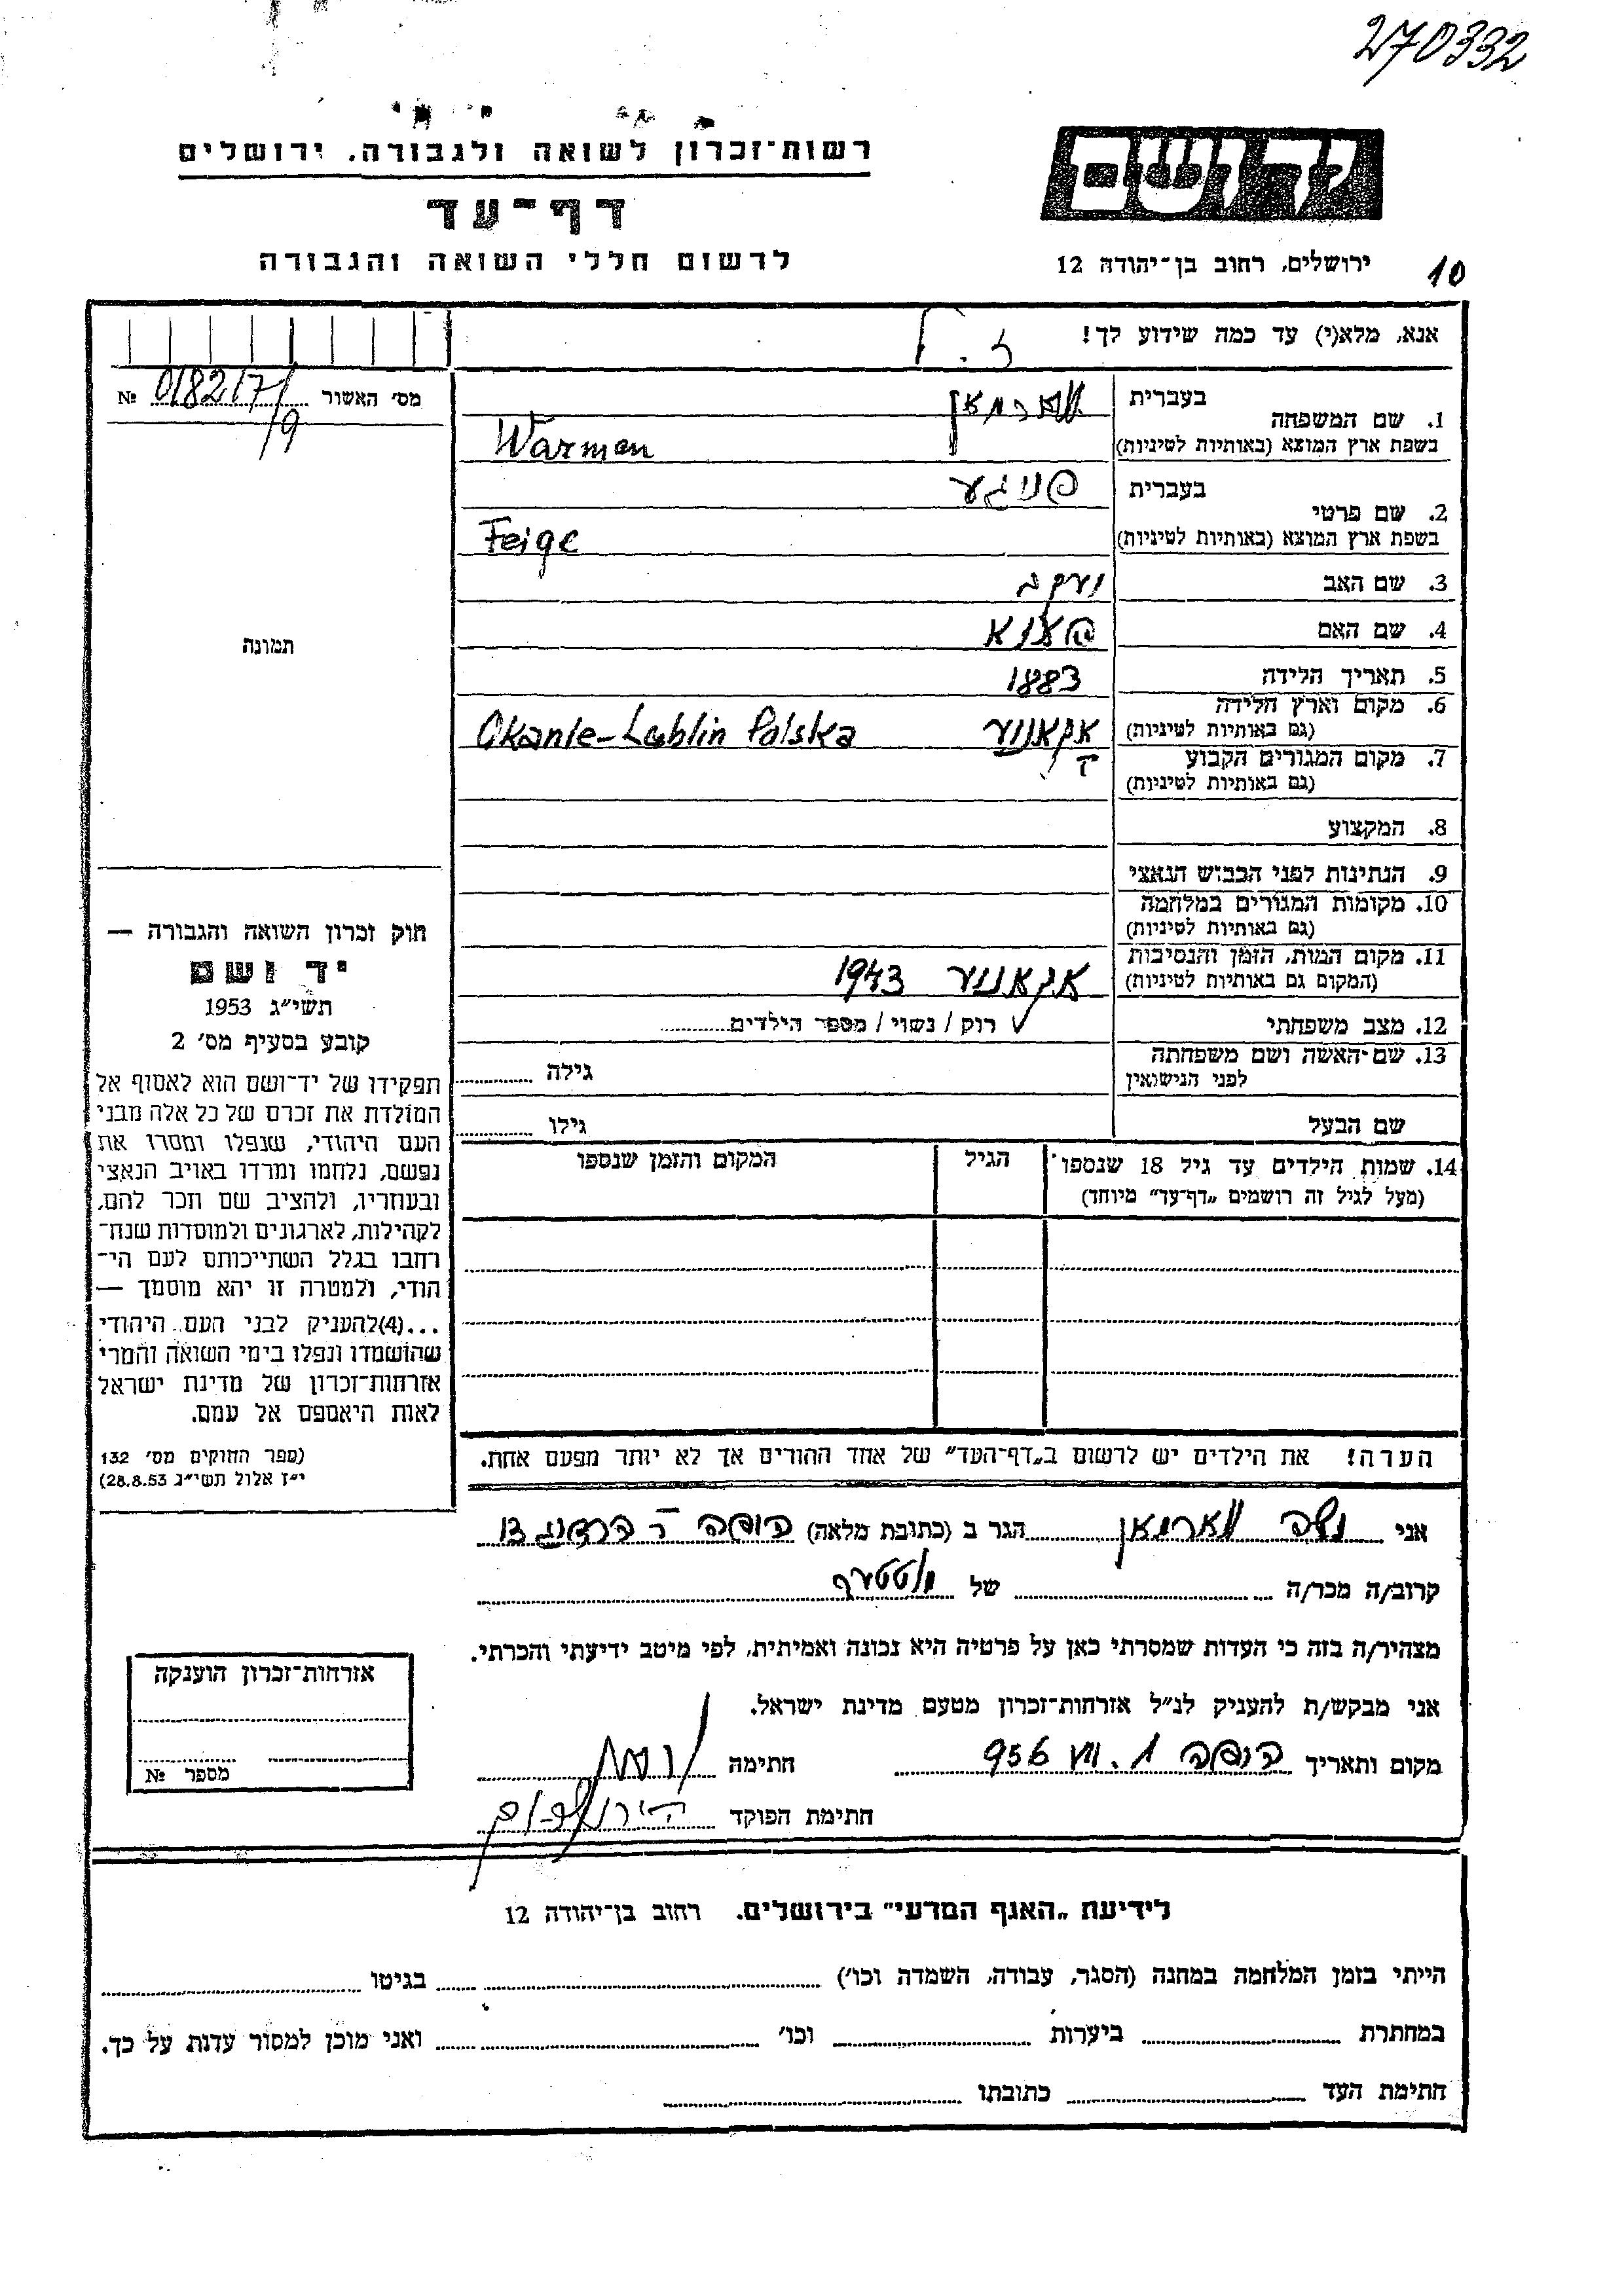 270332
רשות־זכרון לשואה ולגבורה. ירושלים
דף־עד
לרשום חללי השואה והגבורה
ידושם
ירושלים, רחוב בן־יהודה 12
10
אנא, מלא(י) עד כמה שידוע לך!
מס׳ האשור № 018217/
/9
תמונה
1. שם המשפחה
בעברית ווארמאן
בשפת ארץ המוצא (באותיות לטיניות) Warman
2. שם פרטי
בעברית פייגע
בשפת ארץ המוצא (באותיות לטיניות) Feige
3. שם האב יעקב
4. שם האם
5. תאריך הלידה 1883
6. מקום וארץ הלידה
(גם באותיות לטיניות) Lublin Polska
7. מקום המגורים הקבוע
(גם באותיות לטיניות)
8. המקצוע
9. הנתינות לפני הכבוש הנאצי
10. מקומות המגורים במלחמה
(גם באותיות לטיניות)
11. מקום המות, הזמן והנסיבות
(המקום גם באותיות לטיניות) 1943
12. מצב משפחתי רוק / נשוי / מספר הילדים
13. שם־האשה ושם משפחתה
לפני הנישואין גילה
שם הבעל גילו
14. שמות הילדים עד גיל 18 שנספו
(מעל לגיל זה רושמים „דף־עד״ מיוחד)
הגיל
המקום והזמן שנספו
חוק זכרון השואה והגבורה —
יד ושם
תשי״ג 1953
קובע בסעיף מס׳ 2
תפקידו של יד־ושם הוא לאסוף אל
המולדת את זכרם של כל אלה מבני
העם היהודי, שנפלו ומסרו את
נפשם, נלחמו ומרדו באויב הנאצי
ובעוזריו, ולהציב שם וזכר להם,
לקהילות, לארגונים ולמוסדות שנח־
רחבו בגלל השתייכותם לעם הי־
הודי, ולמטרה זו יהא מוסמך —
...(4)להעניק לבני העם היהודי
שהושמדו ונפלו בימי השואה והמרי
אזרחות־זכרון של מדינת ישראל
לאות היאספם אל עמם.
(ספר החוקים מס׳ 132
י״ז אלול תשי״ג 28.8.53)
הערה! את הילדים יש לרשום ב„דף־העד״ של אחד ההורים אך לא יותר מפעם אחת.
אני ווארמאן הגר ב (כתובת מלאה) חיפה 13
קרוב/ה מכר/ה של
מצהיר/ה בזה כי העדות שמסרתי כאן על פרטיה היא נכונה ואמיתית, לפי מיטב ידיעתי והכרתי.
אני מבקש/ת להעניק לנ״ל אזרחות־זכרון מטעם מדינת ישראל.
מקום ותאריך חיפה 956 חתימה
חתימת הפוקד
אזרחות־זכרון הוענקה
מספר №
לידיעת „האגף המדעי״ בירושלים. רחוב בן־יהודה 12
הייתי בזמן המלחמה במחנה (הסגר, עבודה, השמדה וכו׳) בגיטו
במחתרת ביערות וכו׳ ואני מוכן למסור עדות על כך.
חתימת העד כתובתו